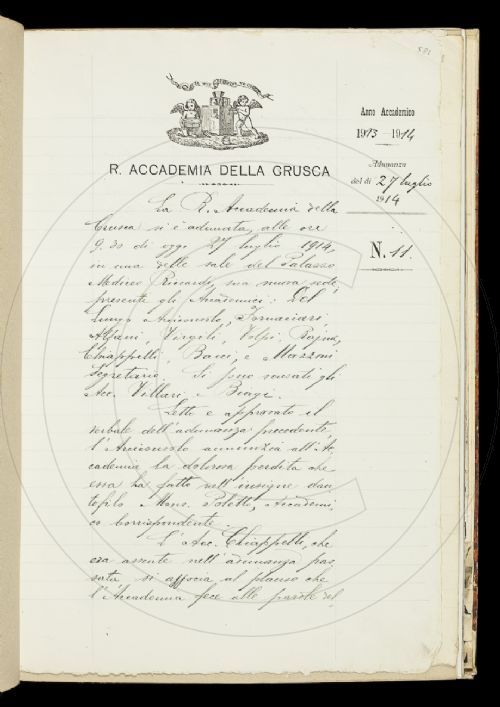 Anno Accademico
1913-1914
Adunanza
del dì 27 luglio
1914
N. 11.
R. ACCADEMIA DELLA CRUSCA
La R. Accademia della
Crusca si è adunata, alle ore
9.30 di oggi 27 luglio 1914,
in una delle sale del Palazzo
Mediceo Riccardi, sua nuova sede,
presente gli Accademici: Del
Lungo Arciconsolo, Fornaciari,
Alfani, Virgili, Volpi, Rajna,
Chiappelli, Bacci, e Mazzoni
Segretario. Si sono scusati gli
Acc. Villari, e Biagi.
Letto e approvato il
verbale dell'adunanza precedente,
l'Arciconsolo annunzia all'Ac
cademia la dolorosa perdita che
essa ha fatto nell'insigne dan
tofilo Mons. Poletto, Accademi
co corrispondente.
L'Acc. Chiappelli, che
era assente nell'adunanza pas
sata, si associa al plauso che
l'Accademia fece alle parole del